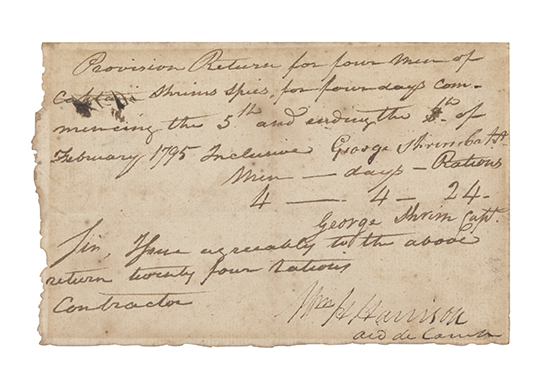 Provision Return for four Men of
Shrims Spies, for four days com-
mencing the 5th and ending the 8th of
February 1795 Inclusive George Shrim Capt.
Men — days — Rations
4 — 4 - 24 -
George Shrim Capt.
Sir, Issue agreeably to the above
return twenty four rations
Contractor
Wm H Harrison
aid de Camp